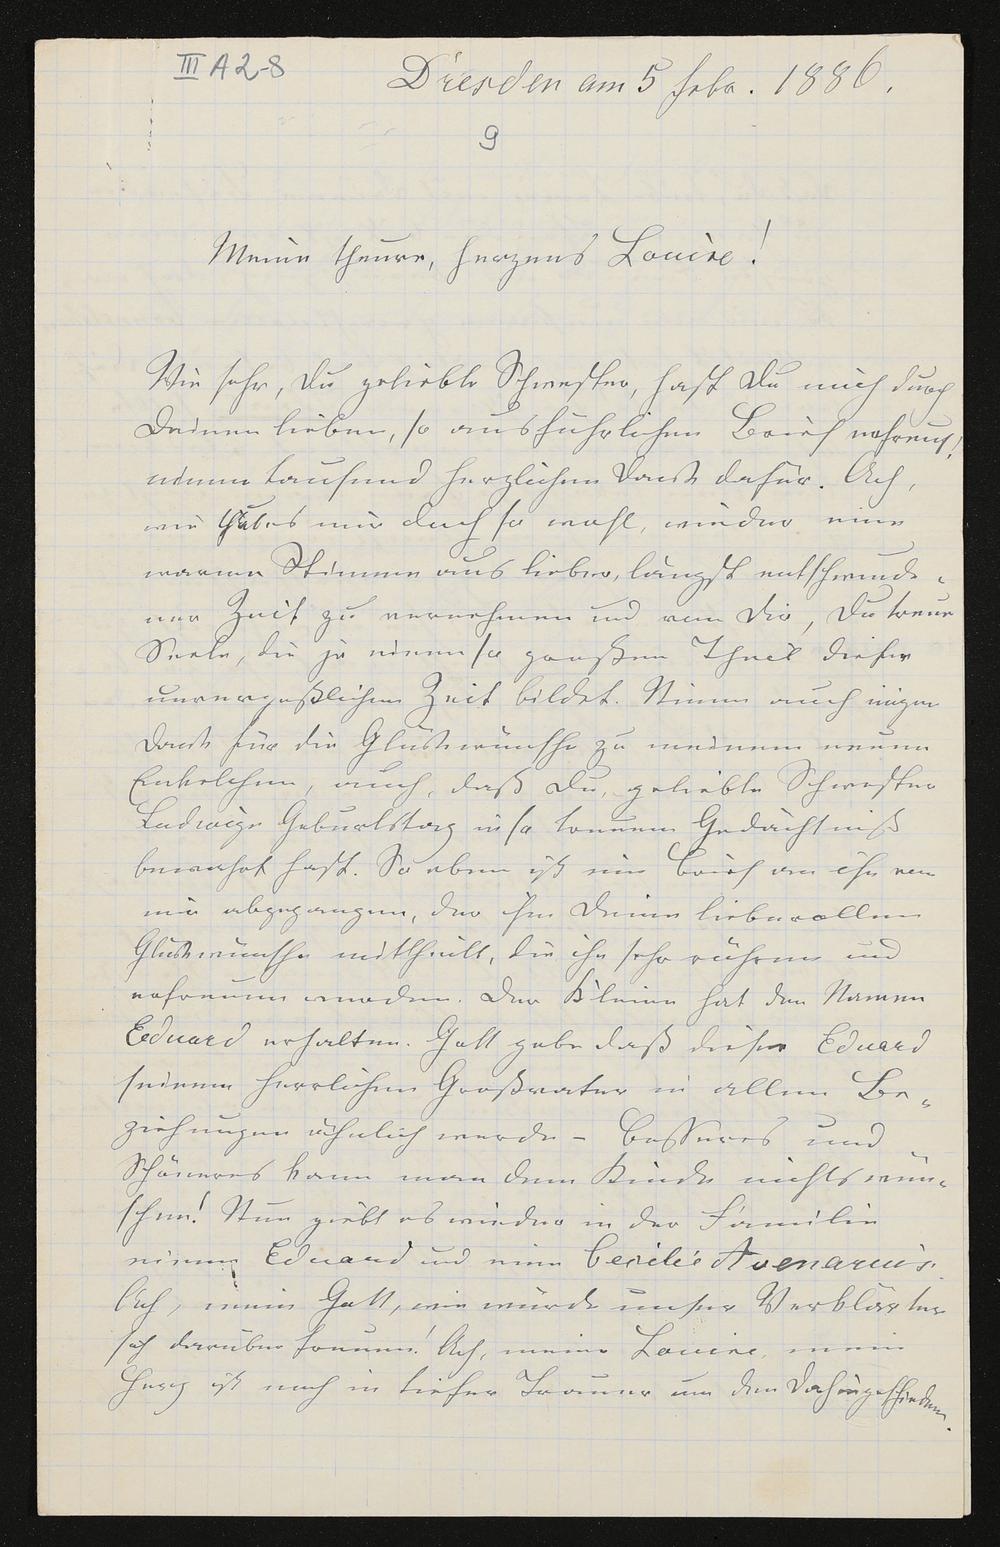 III A 2-8
Dresden am 5 Febr. 1886.
9
Meine theure, herzens Louise!
Wie sehr, Du geliebte Schwester, hast Du mich durch
Deinen lieben, so ausführlichen Brief erfreut!
einen tausend herzlichen Dank dafür. Ach,
wie that es mir doch so wohl, wieder eine
warme Stimme aus lieber, längst entschwunde-
ner Zeit zu vernehmen und von Dir, Du treue
Seele, die ja einen so großen Theil dieser
unvergeßlichen Zeit bildet. Nimm auch innigen
Dank für die Glückwünsche zu meinem neuen
Enkelchen, auch, daß Du, geliebte Schwester
Ludwigs Geburtstag in so treuem Gedächtniß
bewahrt hast. So eben ist ein Brief an ihn von
mir abgegangen, der ihm Deine liebevollen
Glückwünsche mittheilt, die ihn sehr rühren und
erfreuen werden. Der Kleine hat den Namen
Eduard erhalten. Gott gebe daß dieser Eduard
seinem herrlichen Großvater in allen Be-
ziehungen ähnlich werde – Besseres und
Schöneres kann man dem Kinde nichts wün-
schen! Nun giebt es wieder in der Familie
einen Eduard und eine Cecilie Avenarius.
Ach, mein Gott, wie würde unser Verklärter
sich darüber freuen! Ach, meine Louise, mein
Herz ist noch in tiefer Trauer um den Dahingeschiedenen.